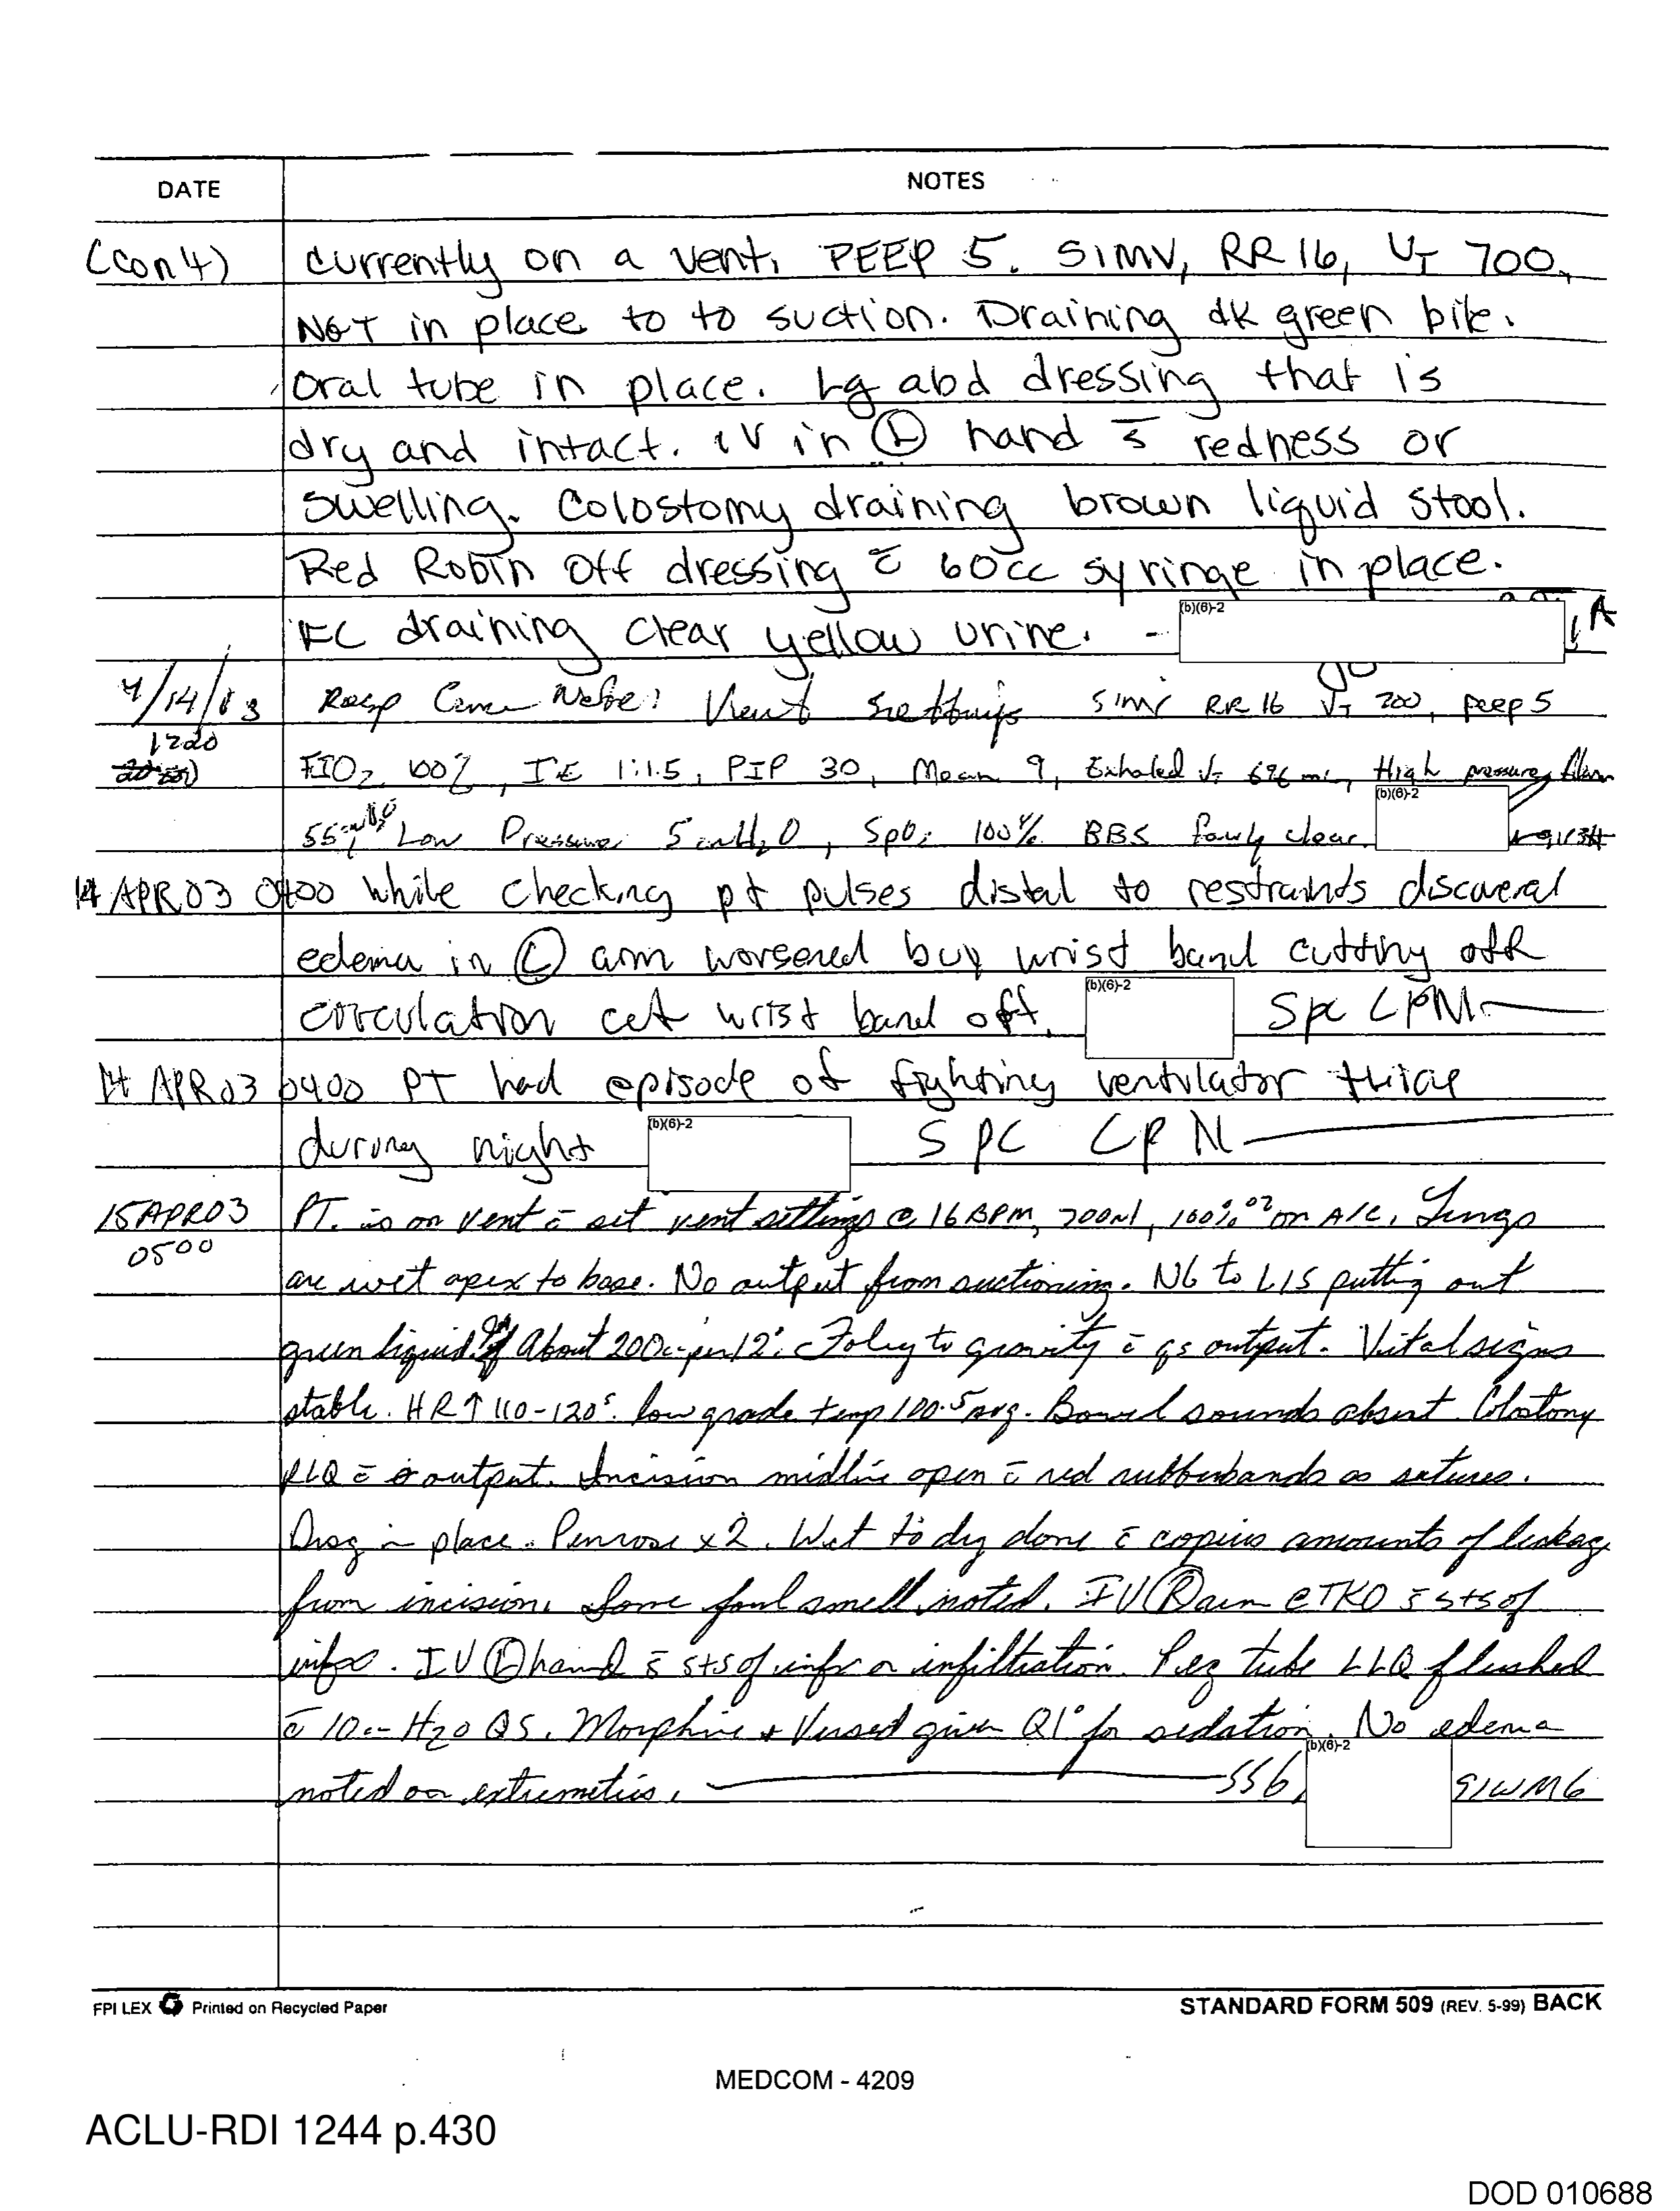 DATE NOTES
(con4) currently on a vent. PEEP 5. SIMV, RR 16, VT 700,
NGT in place to to suction. Draining dk green bile.
Oral tube in place. Lg abd dressing that is
dry and intact. IV in Ⓛ hand s̄ redness or
swelling. Colostomy draining brown liquid stool.
Red Robin Off dressing c̄ 60cc syringe in place.
FC draining clear yellow urine. - (b)(6)-2
4/14/03 Resp Care Note: Vent settings SIMV RR 16 VT 700, peep 5
1220
FIO2 100%, I:E 1:1.5, PIP 30, Mean 9, Exhaled VT 696 ml, High pressure Alarm
55 cmH2O Low Pressure 5 cmH2O, SpO2 100% BBS fairly clear. (b)(6)-2
14 APR 03 0400 While checking pt pulses distal to restraints discovered
edema in Ⓛ arm worsened buy wrist band cutting off
circulation cut wrist band off. (b)(6)-2 Spc LPN
14 APR 03 0400 PT had episode of fighting ventilator thice
during night (b)(6)-2 SPC LPN
15APR03 PT. is on vent c̄ set vent settings @ 16 BPM, 700ml, 100% O2 on A/C. Lungs
0500
are wet apex to base. No output from suctioning. NG to LIS putting out
green liquid. About 200cc per 12°. Foley to gravity c̄ qs output. Vital signs
stable. HR↑ 110-120s. low grade temp 100.5 avg. Bowel sounds absent. Colostomy
RLQ c̄ ø output. Incision midline open c̄ red rubberbands as sutures.
Drsg in place. Penrose x2. Wet to dry done c̄ copius amounts of leakage
from incision. Some foul smell noted. IV Ⓡ arm @ TKO s̄ s+s of
infx. IV Ⓛ hand s̄ s+s of infx or infiltration. Peg tube LLQ flushed
c̄ 10cc H2O QS. Morphine + Versed given Q1° for sedation. No edema
noted on extremetis. SSG, (b)(6)-2 91WM6
FPI LEX Printed on Recycled Paper STANDARD FORM 509 (REV. 5-99) BACK
MEDCOM - 4209
ACLU-RDI 1244 p.430
DOD 010688